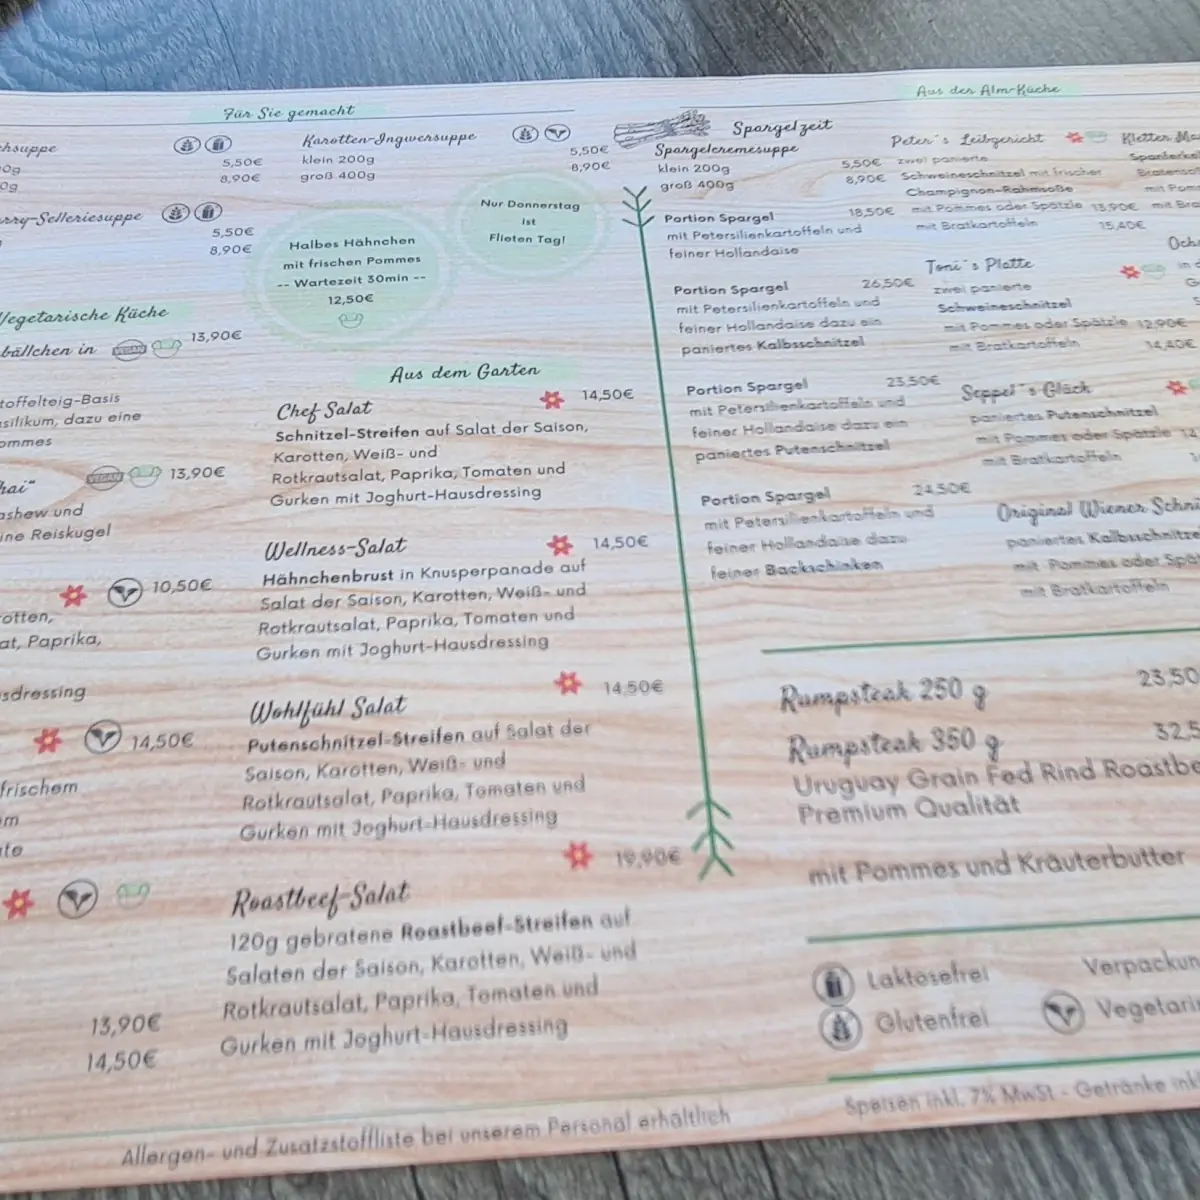 Für Sie gemacht
5,50€
8,90€
5,50€
8,90€
Karotten-Ingwersuppe
klein 200g
5,50€
groß 400g
8,90€
Halbes Hähnchen
mit frischen Pommes
-- Wartezeit 30min --
12,50€
Nur Donnerstag
ist
Flieten Tag!
Vegetarische Küche
bällchen in VEGAN 13,90€
toffelteig-Basis
silikum, dazu eine
ommes
VEGAN 13,90€
hai“
ashew und
ine Reiskugel
10,50€
otten,
at, Paprika,
sdressing
14,50€
frischem
13,90€
14,50€
Aus dem Garten
Chef Salat 14,50€
Schnitzel-Streifen auf Salat der Saison,
Karotten, Weiß- und
Rotkrautsalat, Paprika, Tomaten und
Gurken mit Joghurt-Hausdressing
Wellness-Salat 14,50€
Hähnchenbrust in Knusperpanade auf
Salat der Saison, Karotten, Weiß- und
Rotkrautsalat, Paprika, Tomaten und
Gurken mit Joghurt-Hausdressing
Wohlfühl Salat 14,50€
Putenschnitzel-Streifen auf Salat der
Saison, Karotten, Weiß- und
Rotkrautsalat, Paprika, Tomaten und
Gurken mit Joghurt-Hausdressing
Roastbeef-Salat 19,90€
120g gebratene Roastbeef-Streifen auf
Salaten der Saison, Karotten, Weiß- und
Rotkrautsalat, Paprika, Tomaten und
Gurken mit Joghurt-Hausdressing
Spargelzeit
Spargelcremesuppe
klein 200g 5,50€
groß 400g 8,90€
Portion Spargel 18,50€
mit Petersilienkartoffeln und
feiner Hollandaise
Portion Spargel 26,50€
mit Petersilienkartoffeln und
feiner Hollandaise dazu ein
paniertes Kalbsschnitzel
Portion Spargel 23,50€
mit Petersilienkartoffeln und
feiner Hollandaise dazu ein
paniertes Putenschnitzel
Portion Spargel 24,50€
mit Petersilienkartoffeln und
feiner Hollandaise dazu
feiner Backschinken
Aus der Alm-Küche
Peter´s Leibgericht
zwei panierte
Schweineschnitzel mit frischer
Champignon-Rahmsoße
mit Pommes oder Spätzle 13,90€
mit Bratkartoffeln 15,40€
Toni´s Platte
zwei panierte
Schweineschnitzel
mit Pommes oder Spätzle 12,90€
mit Bratkartoffeln 14,40€
Seppel´s Glück
paniertes Putenschnitzel
mit Pommes oder Spätzle
mit Bratkartoffeln
Original Wiener Schni
paniertes Kalbsschnitze
mit Pommes oder Spä
mit Bratkartoffeln
Kletter Ma
Spanferkel
mit Pom
mit Bra
Rumpsteak 250 g 23,50
Rumpsteak 350 g 32,5
Uruguay Grain Fed Rind Roastbe
Premium Qualität
mit Pommes und Kräuterbutter
Laktosefrei
Verpackun
Glutenfrei
Vegetari
Allergen- und Zusatzstoffliste bei unserem Personal erhältlich
Speisen inkl. 7% MwSt - Getränke inkl